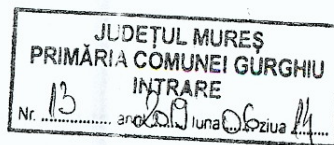 JUDEȚUL MUREȘ
PRIMĂRIA COMUNEI GURGHIU
INTRARE
Nr. 13 anul 2019 luna 06 ziua 14